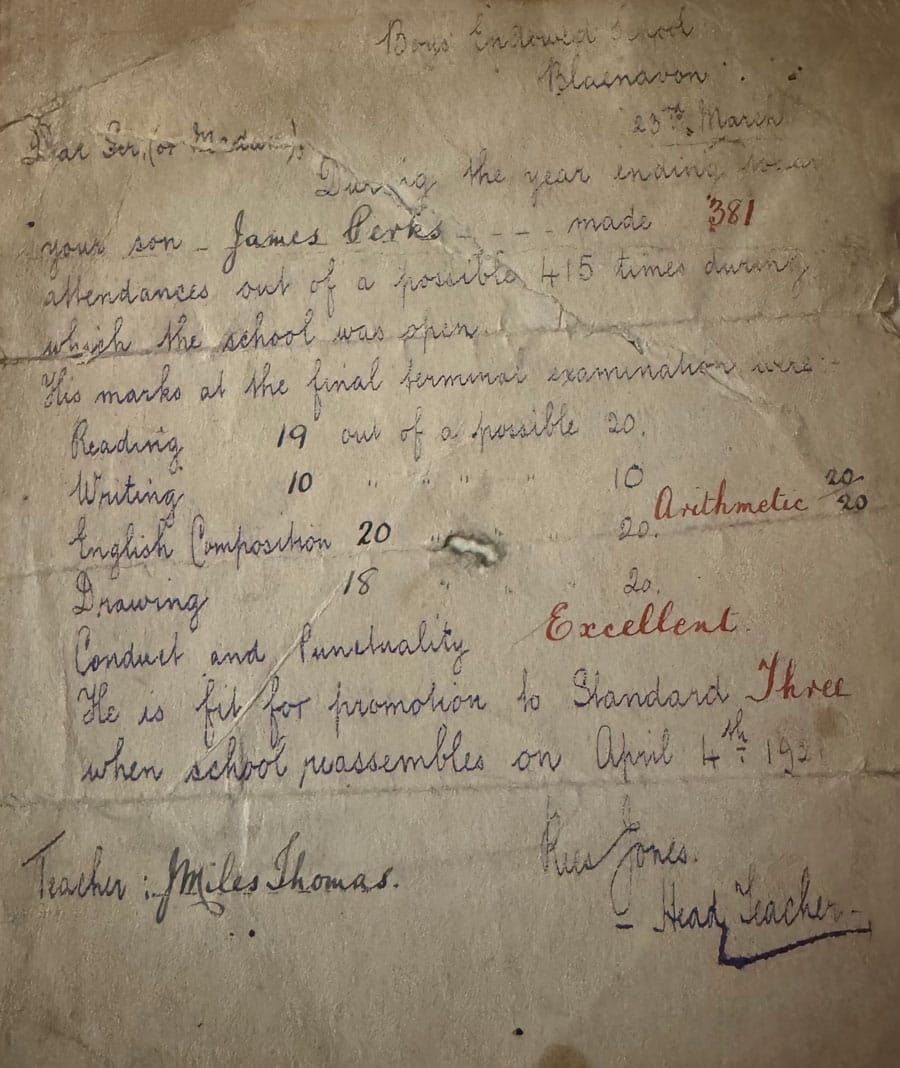 Boys' Endowed School
Blaenavon.
23rd March
Dear Sir, (or Madam),
During the year ending to-day
your son - James Perks - - - - made 381
attendances out of a possible 415 times during
which the school was open.
His marks at the final terminal examination were :-
Reading 19 out of a possible 20.
Writing 10 " " " " 10
Arithmetic 20/20
English Composition 20 " " " 20.
Drawing 18 " " " 20.
Conduct and Punctuality Excellent.
He is fit for promotion to Standard Three
when school reassembles on April 4th.
Rees Jones.
Teacher : J Miles Thomas.
- Head Teacher -